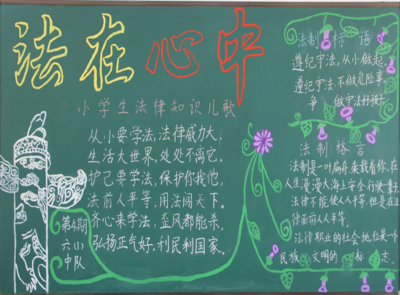 法在心中
小学生法律知识儿歌
从小要学法，法律威力大，
生活大世界，处处不离它，
护己要学法，保护你我他，
法前人平等，用法闯天下，
齐心来学法，歪风都能杀，
弘扬正气好，利民利国家。
第4期
六山
中队
法制标语
遵纪守法，从小做起，
遵纪守法，不做危险事，
争做守法好孩子
法制格言
法制是一叶扁舟来载着你，在
人生漫漫大海上
法律不能使人人平等，但是在法
律面前人人平等。
法律职业的社会地位是一个
民族文明的标志。